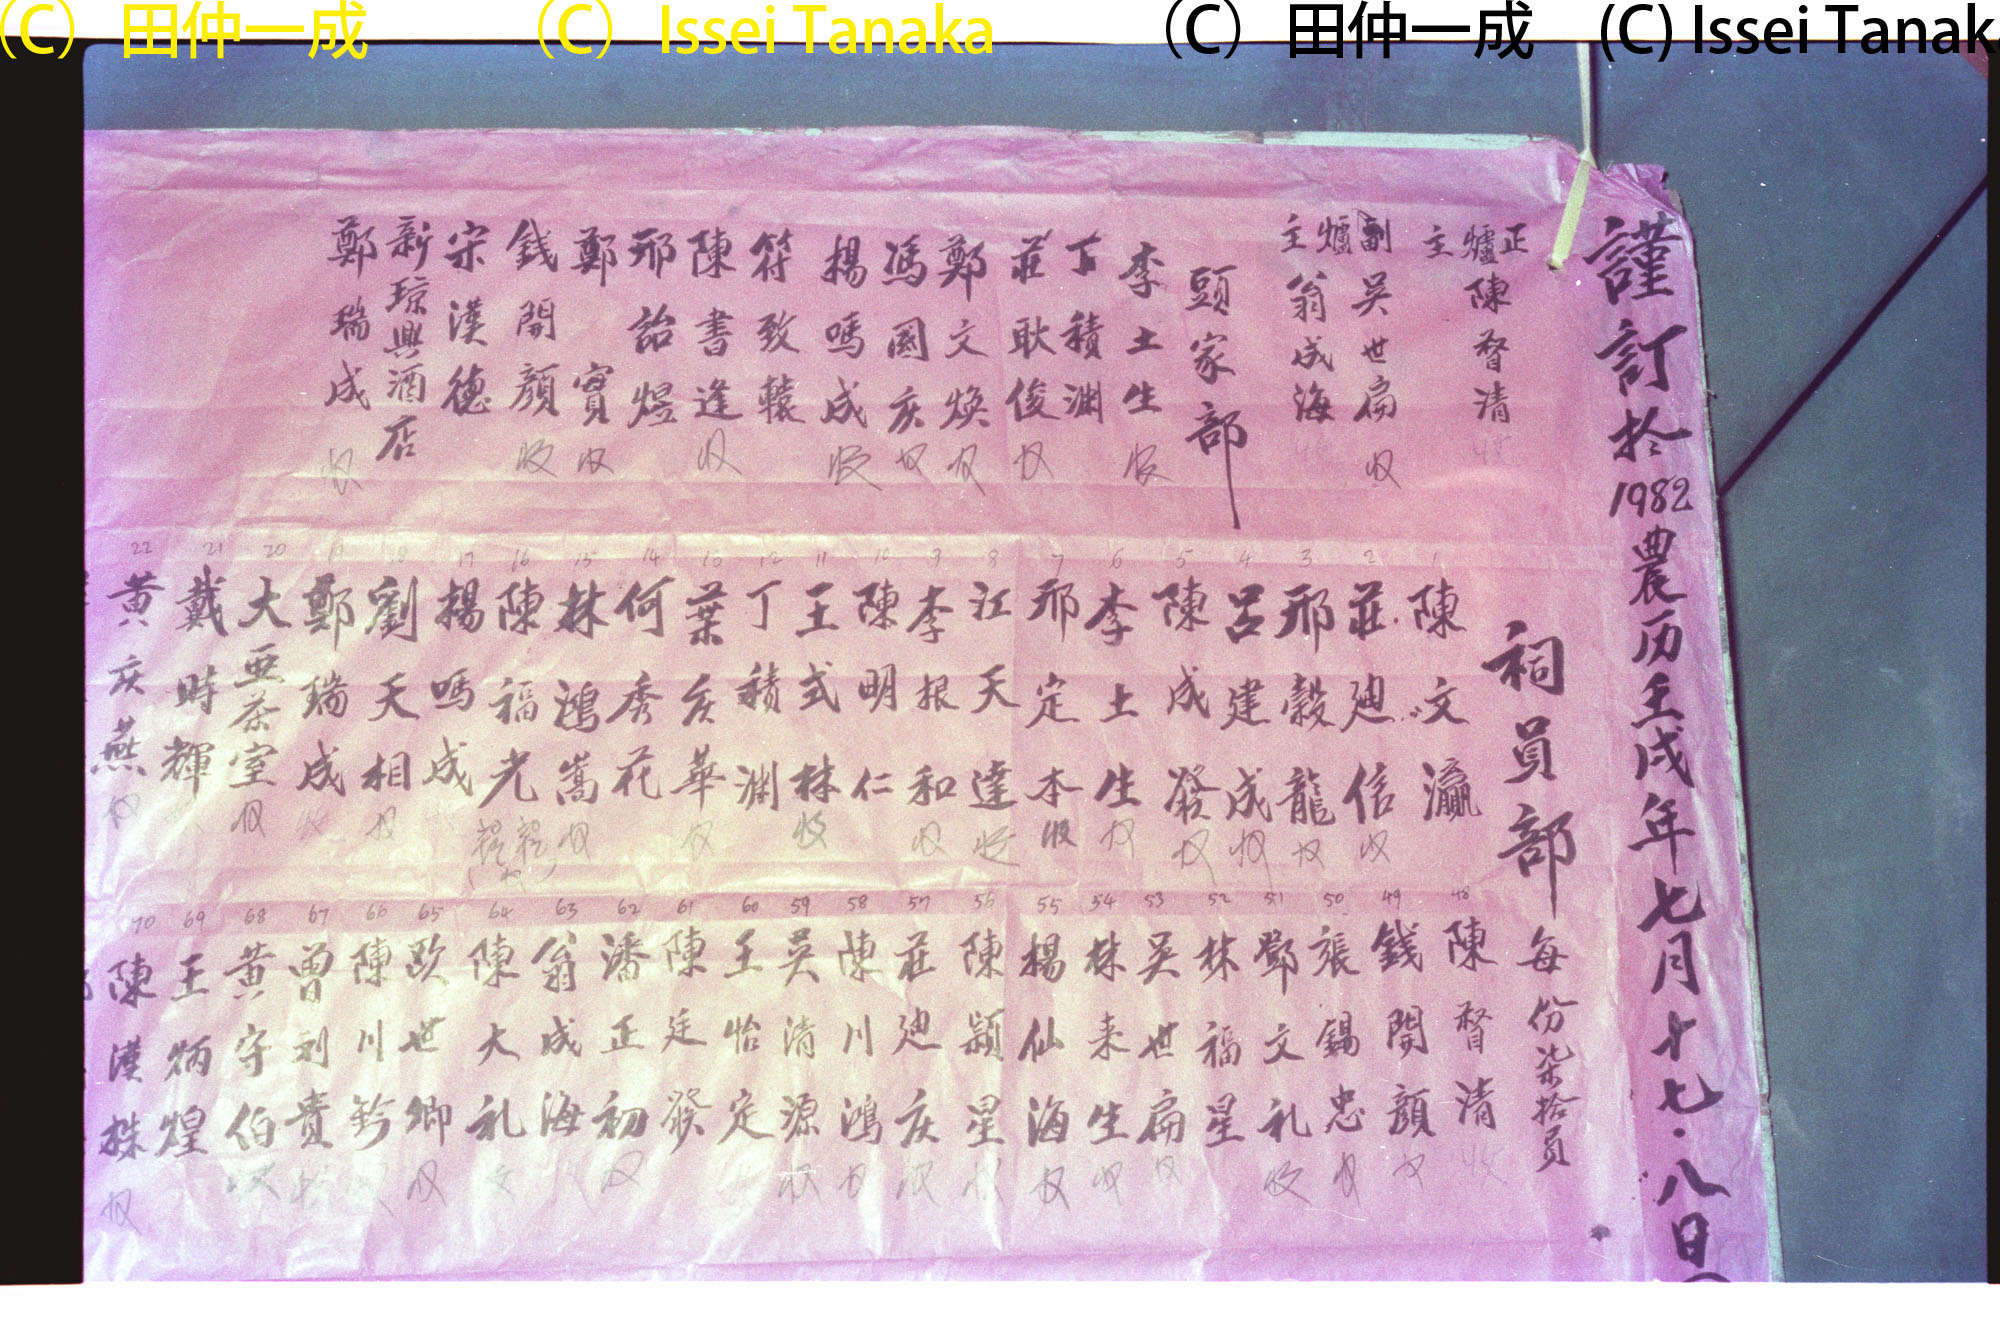 (C) 田仲一成 (C) Issei Tanaka (C) 田仲一成 (C) Issei Tanak
謹訂於1982農历壬戌年七月十七·八日
正爐主 陳督清 收
副爐主 吳世扁 收
翁成海
頭家部
李土生 收
丁積渊
莊耿俊 收
鄭文煥 收
馮國庆 收
楊嗎成 收
符致轅
陳書逢 收
邢詒煜
鄭實 收
錢開顏 收
宋漢德
新琼興酒店
鄭瑞成 收
祠員部 每份柒拾員
1 陳文瀛
2 莊迪信 收
3 邢穀龍 收
4 呂建成 收
5 陳成發 收
6 李土生 收
7 邢定本 收
8 江天達 收
9 李根和 收
10 陳明仁
11 王式林 收
12 丁積渊
13 葉亥華 收
14 何秀花
15 林鴻嵩 收
16 陳福光
17 楊嗎成
18 劉天相 收
19 鄭瑞成 收
20 大亞茶室 收
21 戴時輝
22 黄庆燕 收
48 陳督清 收
49 錢開顏 收
50 張錫忠 收
51 鄧文礼 收
52 林福星
53 吴世扁 收
54 林来生 收
55 楊仙海 收
56 陳颖星 收
57 莊迪庆 收
58 陳川鴻 收
59 吴清源 收
60 王怡定 收
61 陳廷發
62 潘正初 收
63 翁成海 收
64 陳大礼
65 欧世卿 收
66 陳川鈴 收
67 曾利貴
68 黄守伯 收
69 王炳煌
70 陳漢株 收